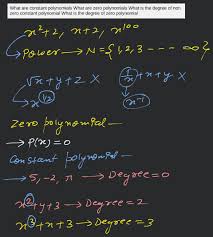 What are constant polynomials What are zero polynomials What is the degree of non
zero constant polynomial What is the degree of zero polynomial
x²+2, x+2, x¹⁰⁰
Power → N={1,2,3 --- ∞}
√x+y+z X
+x+y X
x^1/2
x⁻¹
Zero polynomial —
→ P(x)=0
Constant polynomial —
→ 5, -2, π → Degree=0
x²+y+3 → Degree=2
x³+x+3 → Degree=3